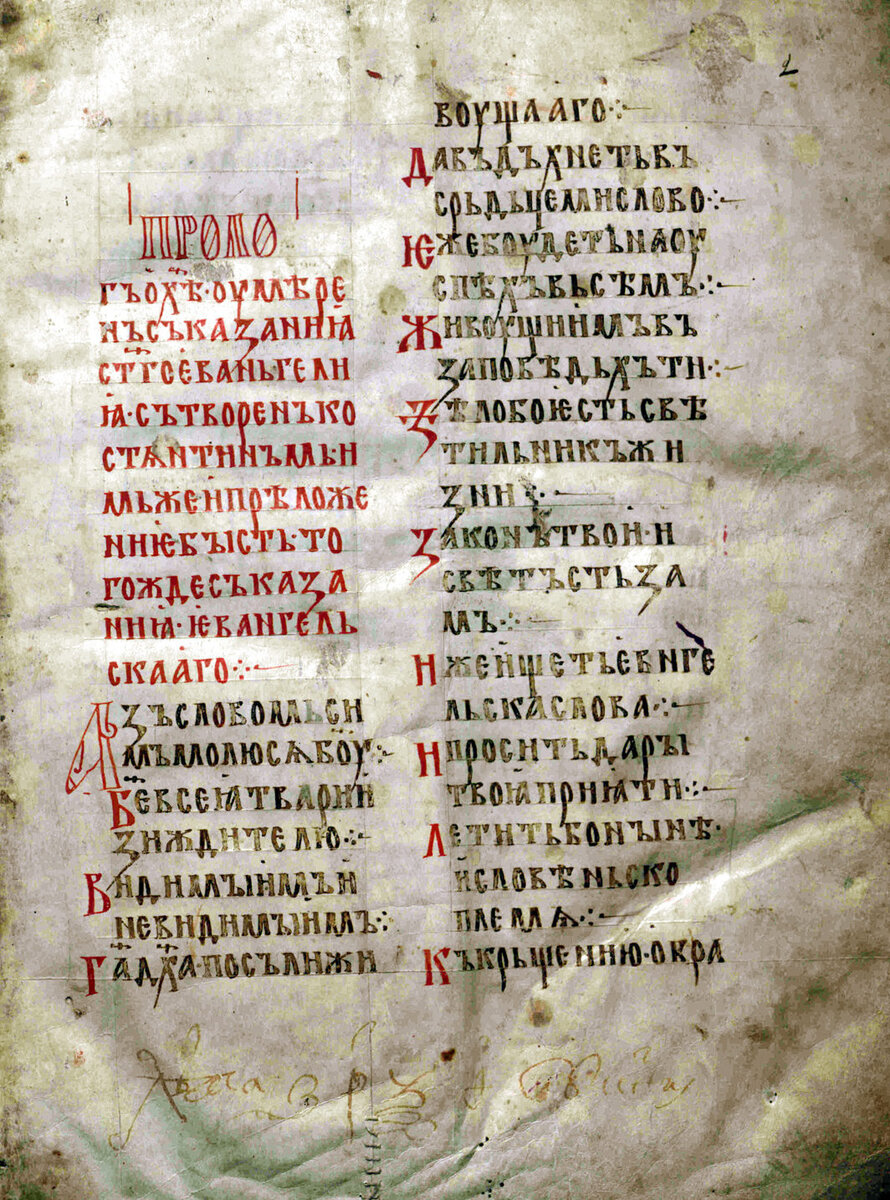 ПРОЛО
гъ о х҃ѣ· оумѣре
нъ съказаниꙗ
ст҃го еваньгели
ꙗ· сътворенъ ко
стѧнтинъмь· и
мьже и прѣложе
ниѥ бысть· то
гожде съказа
ниꙗ· ѥвангель
скааго⁘~
Азъ словомь си
мъ молюсѧ б҃оу⁘
Б҃е всеꙗ твари и
зиждителю⁘~
Видимыимъ и
невидимыимъ⁘
Г҃а д҃ха посъли жи
воущааго⁘~
Да въдъхнеть въ
срьдьце ми слово⁘~
Ѥже боудеть на оу
спѣхъ вьсѣмъ⁘~
Живоущиимъ въ
заповѣдьхъ ти⁘~
Ѕѣло бо ѥсть свѣ
тильникъ жи
зни⁘~
Законъ твои и
свѣтъ стьза
мъ⁘~
Иже ищеть евнге
льска слова⁘~
И просить дары
твоꙗ приꙗти⁘~
Летить бо нынѣ·
и словѣньско
племѧ⁘~
Къ крьщению· обра